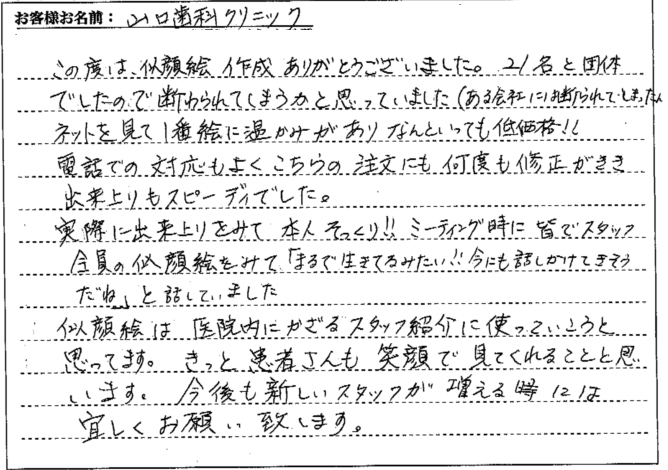 お客様お名前： 山口歯科クリニック
この度は、似顔絵 作成 ありがとうございました。 21名と団体
でしたので断わられてしまうかと思っていました（ある会社には断られてしまった
ネットを見て1番絵に温かみがあり なんといっても低価格!!
電話での 対応もよく こちらの 注文にも 何度も 修正がきき
出来上りもスピーディでした。
実際に出来上りをみて 本人 そっくり!! ミーティング時に 皆でスタッフ
全員の似顔絵をみて、「まるで生きてるみたい!!今にも話しかけてきそう
だね」と話していました
似顔絵は 医院内にかざるスタッフ紹介に使っていこうと
思ってます。 きっと 患者さんも 笑顔で 見てくれることと思
います。 今後も新しいスタッフが 増える時には
宜しくお願い致します。